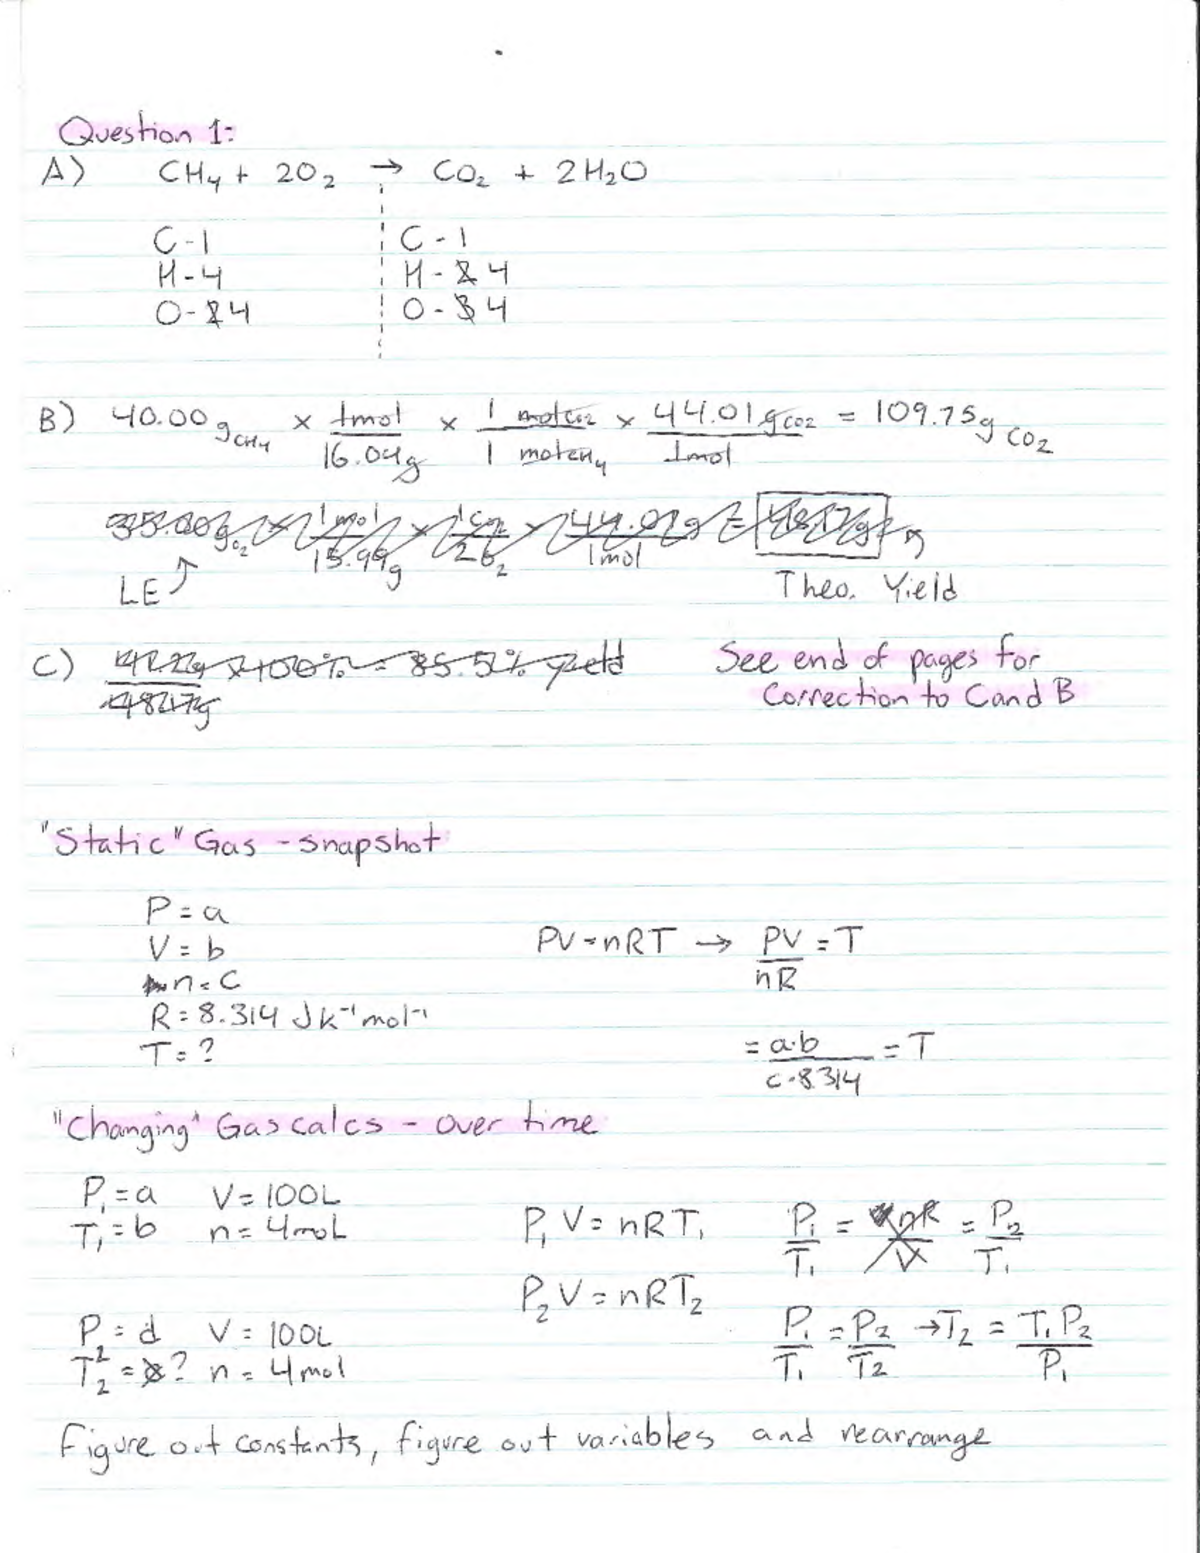 Question 1:
A) CH4 + 2O2 → CO2 + 2H2O
C-1 C-1
H-4 H-2 4
O-2 4 O-3 4
B) 40.00 g CH4 × 1mol/16.04g × 1 mol CO2/1 mol CH4 × 44.01 g CO2/1mol = 109.75g CO2
35.00g O2 × 1mol/15.99g × 1CO2/2O2 × 44.01g/1mol = 48.17g
LE Theo. Yield
C) ×100% = 85.5% yield See end of pages for
48.17g Correction to C and B
"Static" Gas - snapshot
P = a
V = b PV = nRT → PV/nR = T
n = C
R = 8.314 JK⁻¹mol⁻¹
T = ? = a·b/c·8.314 = T
"Changing" Gas calcs - over time
P1 = a V = 100L
T1 = b n = 4mol P1 V = nRT1 P1/T1 = nR/V = P2/T1
P2 V = nRT2
P2 = d V = 100L P1/T1 = P2/T2 → T2 = T1 P2/P1
T2 = ? n = 4mol
Figure out constants, figure out variables and rearrange